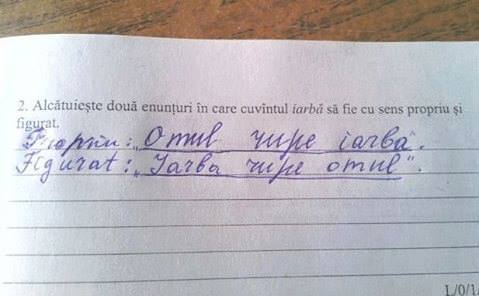 2. Alcătuiește două enunțuri în care cuvîntul iarbă să fie cu sens propriu și
figurat.
Propriu: „Omul rupe iarba".
Figurat: „Iarba rupe omul".
L/0/1